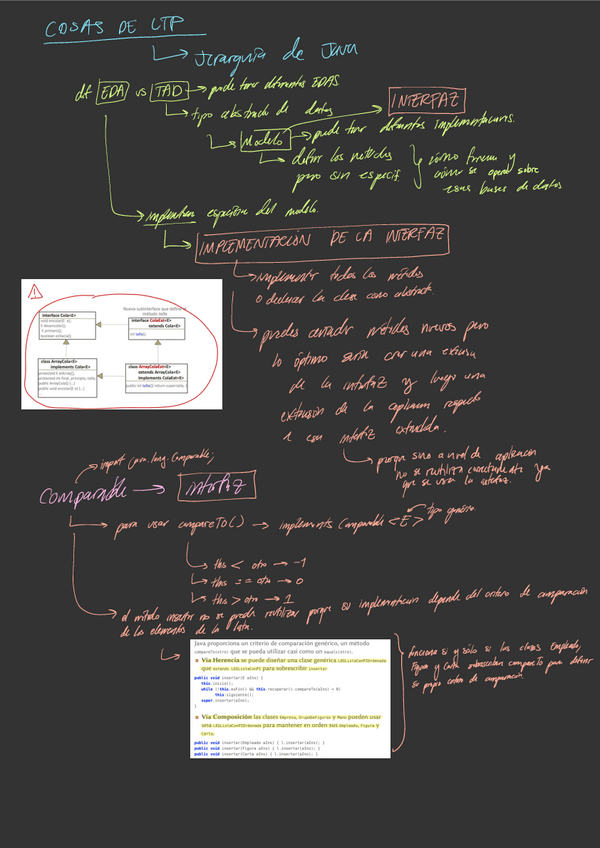 COSAS DE LTP
Jerarquía de Java
dif EDA vs TAD → puede tener diferentes EDAS
tipo abstracto de datos
INTERFAZ
Modelo → puede tener diferentes implementaciones.
definir los métodos
pero sin especif.
cómo y
cómo se opera sobre
esas bases de datos
implementan específica del modelo.
IMPLEMENTACIÓN DE LA INTERFAZ
implementar todos los métodos
o declarar la clase como abstracta
puedes añadir métodos nuevos pero
lo óptimo sería crear una
de la interfaz y luego una
extensión de la respecto
a esa interfaz extendida.
porque sino a nivel de aplicación
no se reutiliza correctamente ya
que se usa la interfaz.
interface Cola<E>
void encolar(E e);
E desencolar();
E primero();
boolean esVacia();
Nueva subinterface que define el
método talla
interface ColaExt<E>
extends Cola<E>
int talla();
class ArrayCola<E>
implements Cola<E>
protected E elArray[];
protected int final, principio, talla;
public ArrayCola() {...}
public void encolar(E e) {...}
class ArrayColaExt<E>
extends ArrayCola<E>
implements ColaExt<E>
public int talla() { return super.talla; }
import java.lang.Comparable;
Comparable → interfaz
para usar compareTo() → implements Comparable <E> tipo genérico.
this < otro → -1
this == otro → 0
this > otro → 1
el método insertar no se puede reutilizar porque su implementación depende del criterio de comparación
de los elementos de la lista.
Java proporciona un criterio de comparación genérico, un método
compareTo(otro) que se pueda utilizar casi como un equals(otro).
Vía Herencia se puede diseñar una clase genérica LEGListaConPIOrdenada
que extends LEGListaConPI para sobrescribir insertar
public void insertar(E eIns) {
this.inicio();
while (!this.esFin() && this.recuperar().compareTo(eIns) < 0)
this.siguiente();
super.insertar(eIns);
}
Vía Composición las clases Empresa, GrupoDeFiguras y Mano pueden usar
una LEGListaConPIOrdenada para mantener en orden sus Empleado, Figura y
Carta.
public void insertar(Empleado eIns) { l.insertar(eIns); }
public void insertar(Figura eIns) { l.insertar(eIns); }
public void insertar(Carta eIns) { l.insertar(eIns); }
funciona si y solo si las clases Empleado,
Figura y Carta sobrescriben compareTo para definir
su propio orden de comparación.